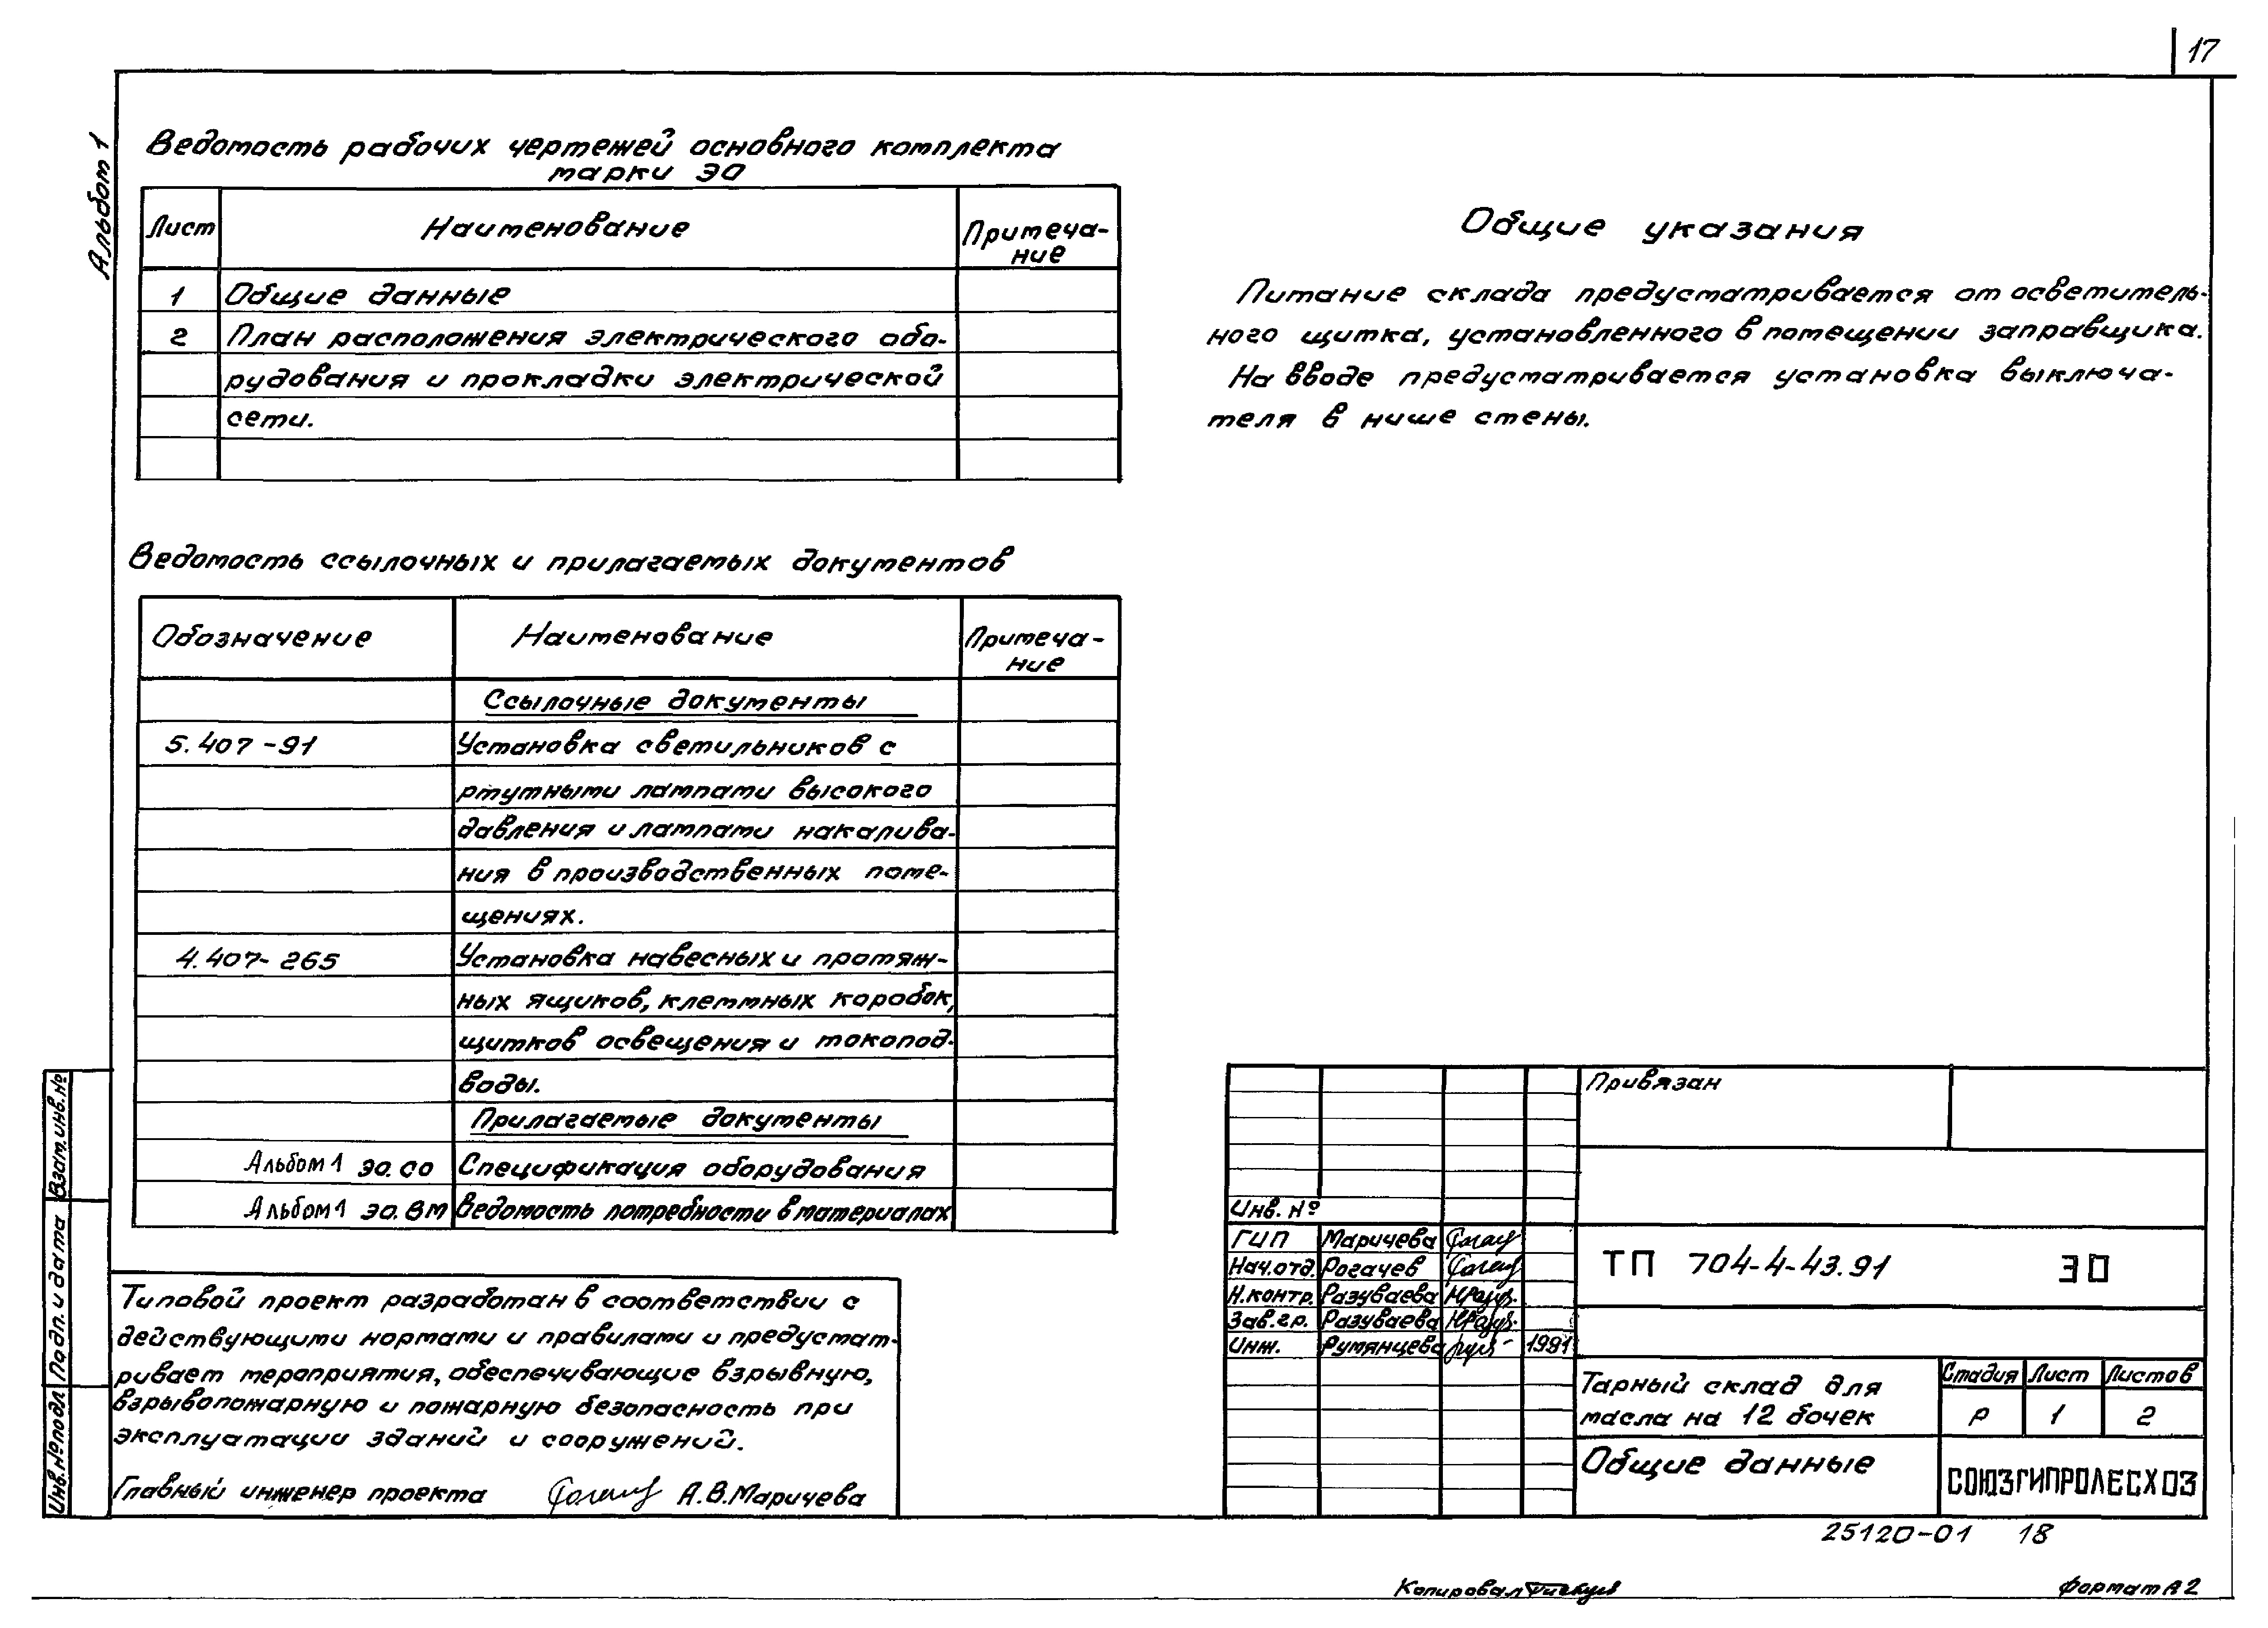 17
Альбом 1
Ведомость рабочих чертежей основного комплекта
марки ЭО
Лист Наименование Примеча-
ние
1 Общие данные
2 План расположения электрического обо-
рудования и прокладки электрической
сети.
Общие указания
Питание склада предусматривается от осветитель-
ного щитка, установленного в помещении заправщика.
На вводе предусматривается установка выключа-
теля в нише стены.
Ведомость ссылочных и прилагаемых документов
Обозначение Наименование Примеча-
ние
Ссылочные документы
5.407-91 Установка светильников с
ртутными лампами высокого
давления и лампами накалива-
ния в производственных поме-
щениях.
4.407-265 Установка навесных и протяж-
ных ящиков, клеммных коробок,
щитков освещения и токопод-
воды.
Прилагаемые документы
Альбом 1 ЭО.СО Спецификация оборудования
Альбом 1 ЭО.ВМ Ведомость потребности в материалах
Типовой проект разработан в соответствии с
действующими нормами и правилами и предусмат-
ривает мероприятия, обеспечивающие взрывную,
взрывопожарную и пожарную безопасность при
эксплуатации зданий и сооружений.
Главный инженер проекта А.В.Маричева
Взам.инв.№
Подп. и дата
Инв.№подл
Привязан
Инв. №
ГИП Маричева
Нач.отд. Рогачев
Н.контр. Разуваева
Зав.гр. Разуваева
Инж. Румянцева 1991
ТП 704-4-43.91 ЭО
Тарный склад для
масла на 12 бочек
Стадия Лист Листов
Р 1 2
Общие данные
СОЮЗГИПРОЛЕСХОЗ
25120-01 18
Копировал
Формат А2